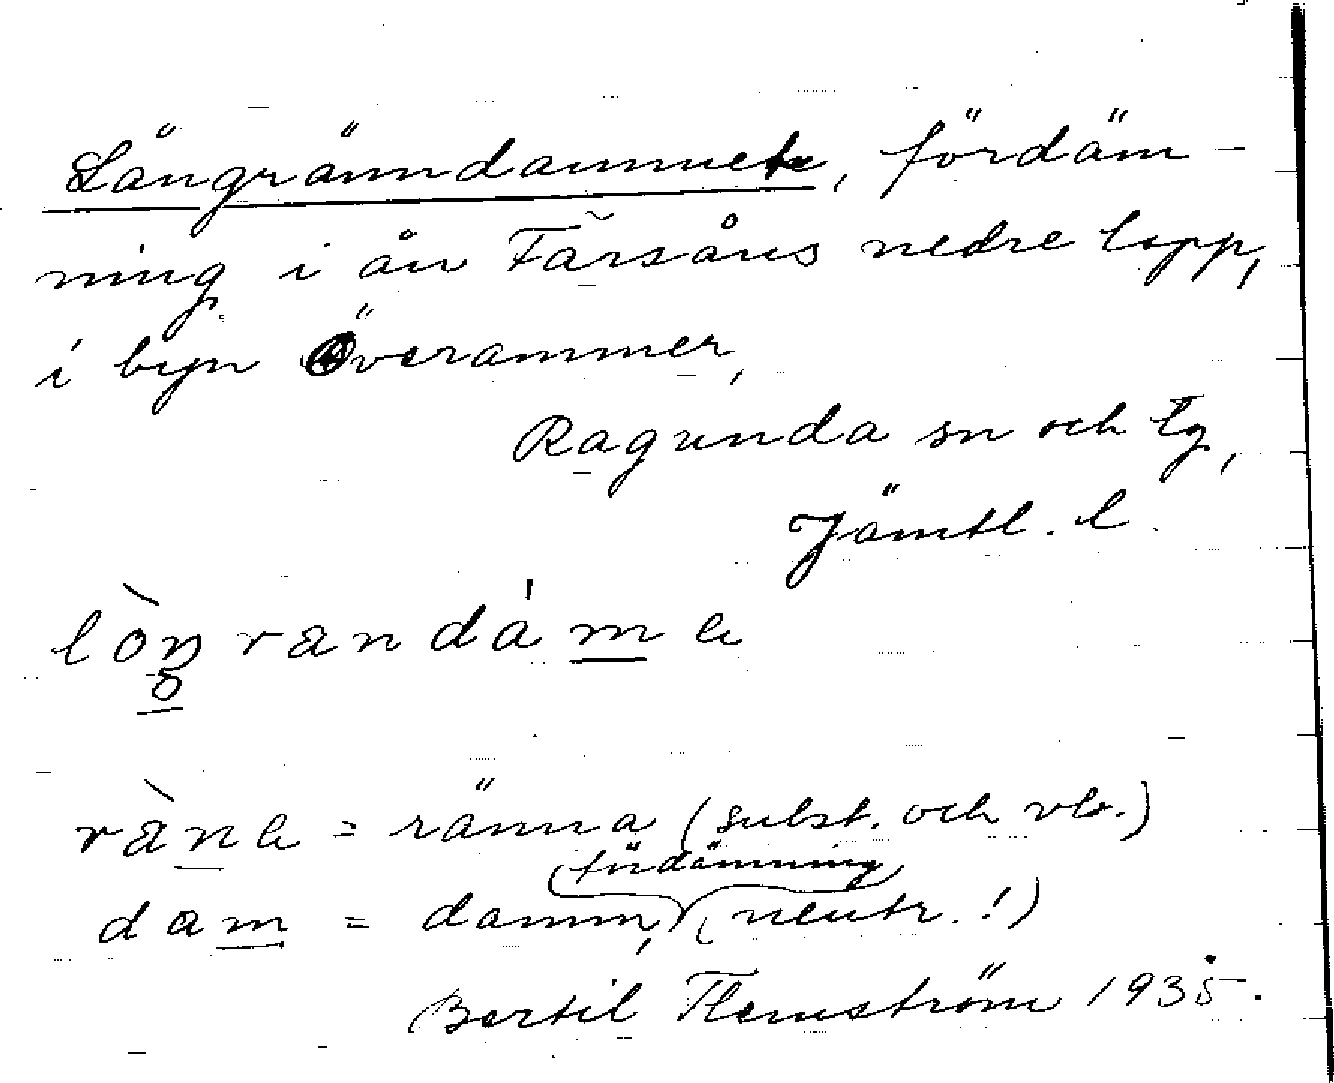 Långränndammet, fördäm-
ning i ån Färsåns nedre lopp,
i byn Överammer,
Ragunda sn och tg,
Jämtl. l.
ràne = ränna (subst. och vb.)
fördämning
dam = damm, (neutr.!)
Bertil Flemström 1935.